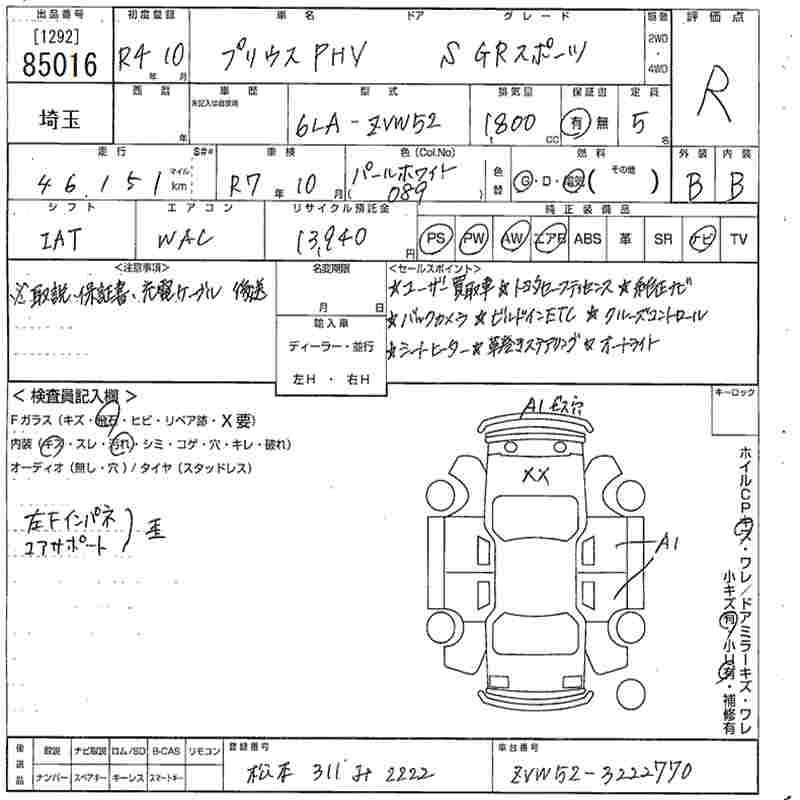 出品番号 初度登録 車名 ドア グレード 駆動 評価点
[1292]
85016 R4年 10月 プリウスPHV S GRスポーツ 2WD・4WD R
埼玉 西暦 年 車歴 型式 排気量 保証書 定員
未記入は自家用
6LA-ZVW52 1800cc 有 無 5名
走行 S## 車検 色(Col.No) 色替 燃料 外装 内装
46,151 マイル km R7年 10月 パールホワイト ( 089 ) G・D・電気( その他 ) B B
シフト エアコン リサイクル預託金 純正装備品
IAT WAC 13,940円 PS PW AW エアB ABS 革 SR ナビ TV
<注意事項> 名変期限 <セールスポイント>
※取説、保証書、充電ケーブル 後送
月 日
輸入車
ディーラー・並行
左H・右H
★ユーザー買取車★トヨタセーフティセンス★純正ナビ
★バックカメラ★ビルドインETC ★クルーズコントロール
★シートヒーター★革巻きステアリング★オートライト
<検査員記入欄> キーロック
Fガラス(キズ・飛石・ヒビ・リペア跡・X要)
内装(キズ・スレ・汚れ・シミ・コゲ・穴・キレ・破れ)
オーディオ(無し・穴)/タイヤ(スタッドレス)
左Fインパネ
コアサポート ) 歪
A1 ビス穴
XX
A1
ホイルCPキズ・ワレ/ドアミラーキズ・ワレ
小キズ有/小U有・補修有
後送品 取説 ナビ取説 ロム/SD B-CAS リモコン 登録番号 車台番号
ナンバー スペアキー キーレス スマートキー 松本 311 み 2222 ZVW52-3222770